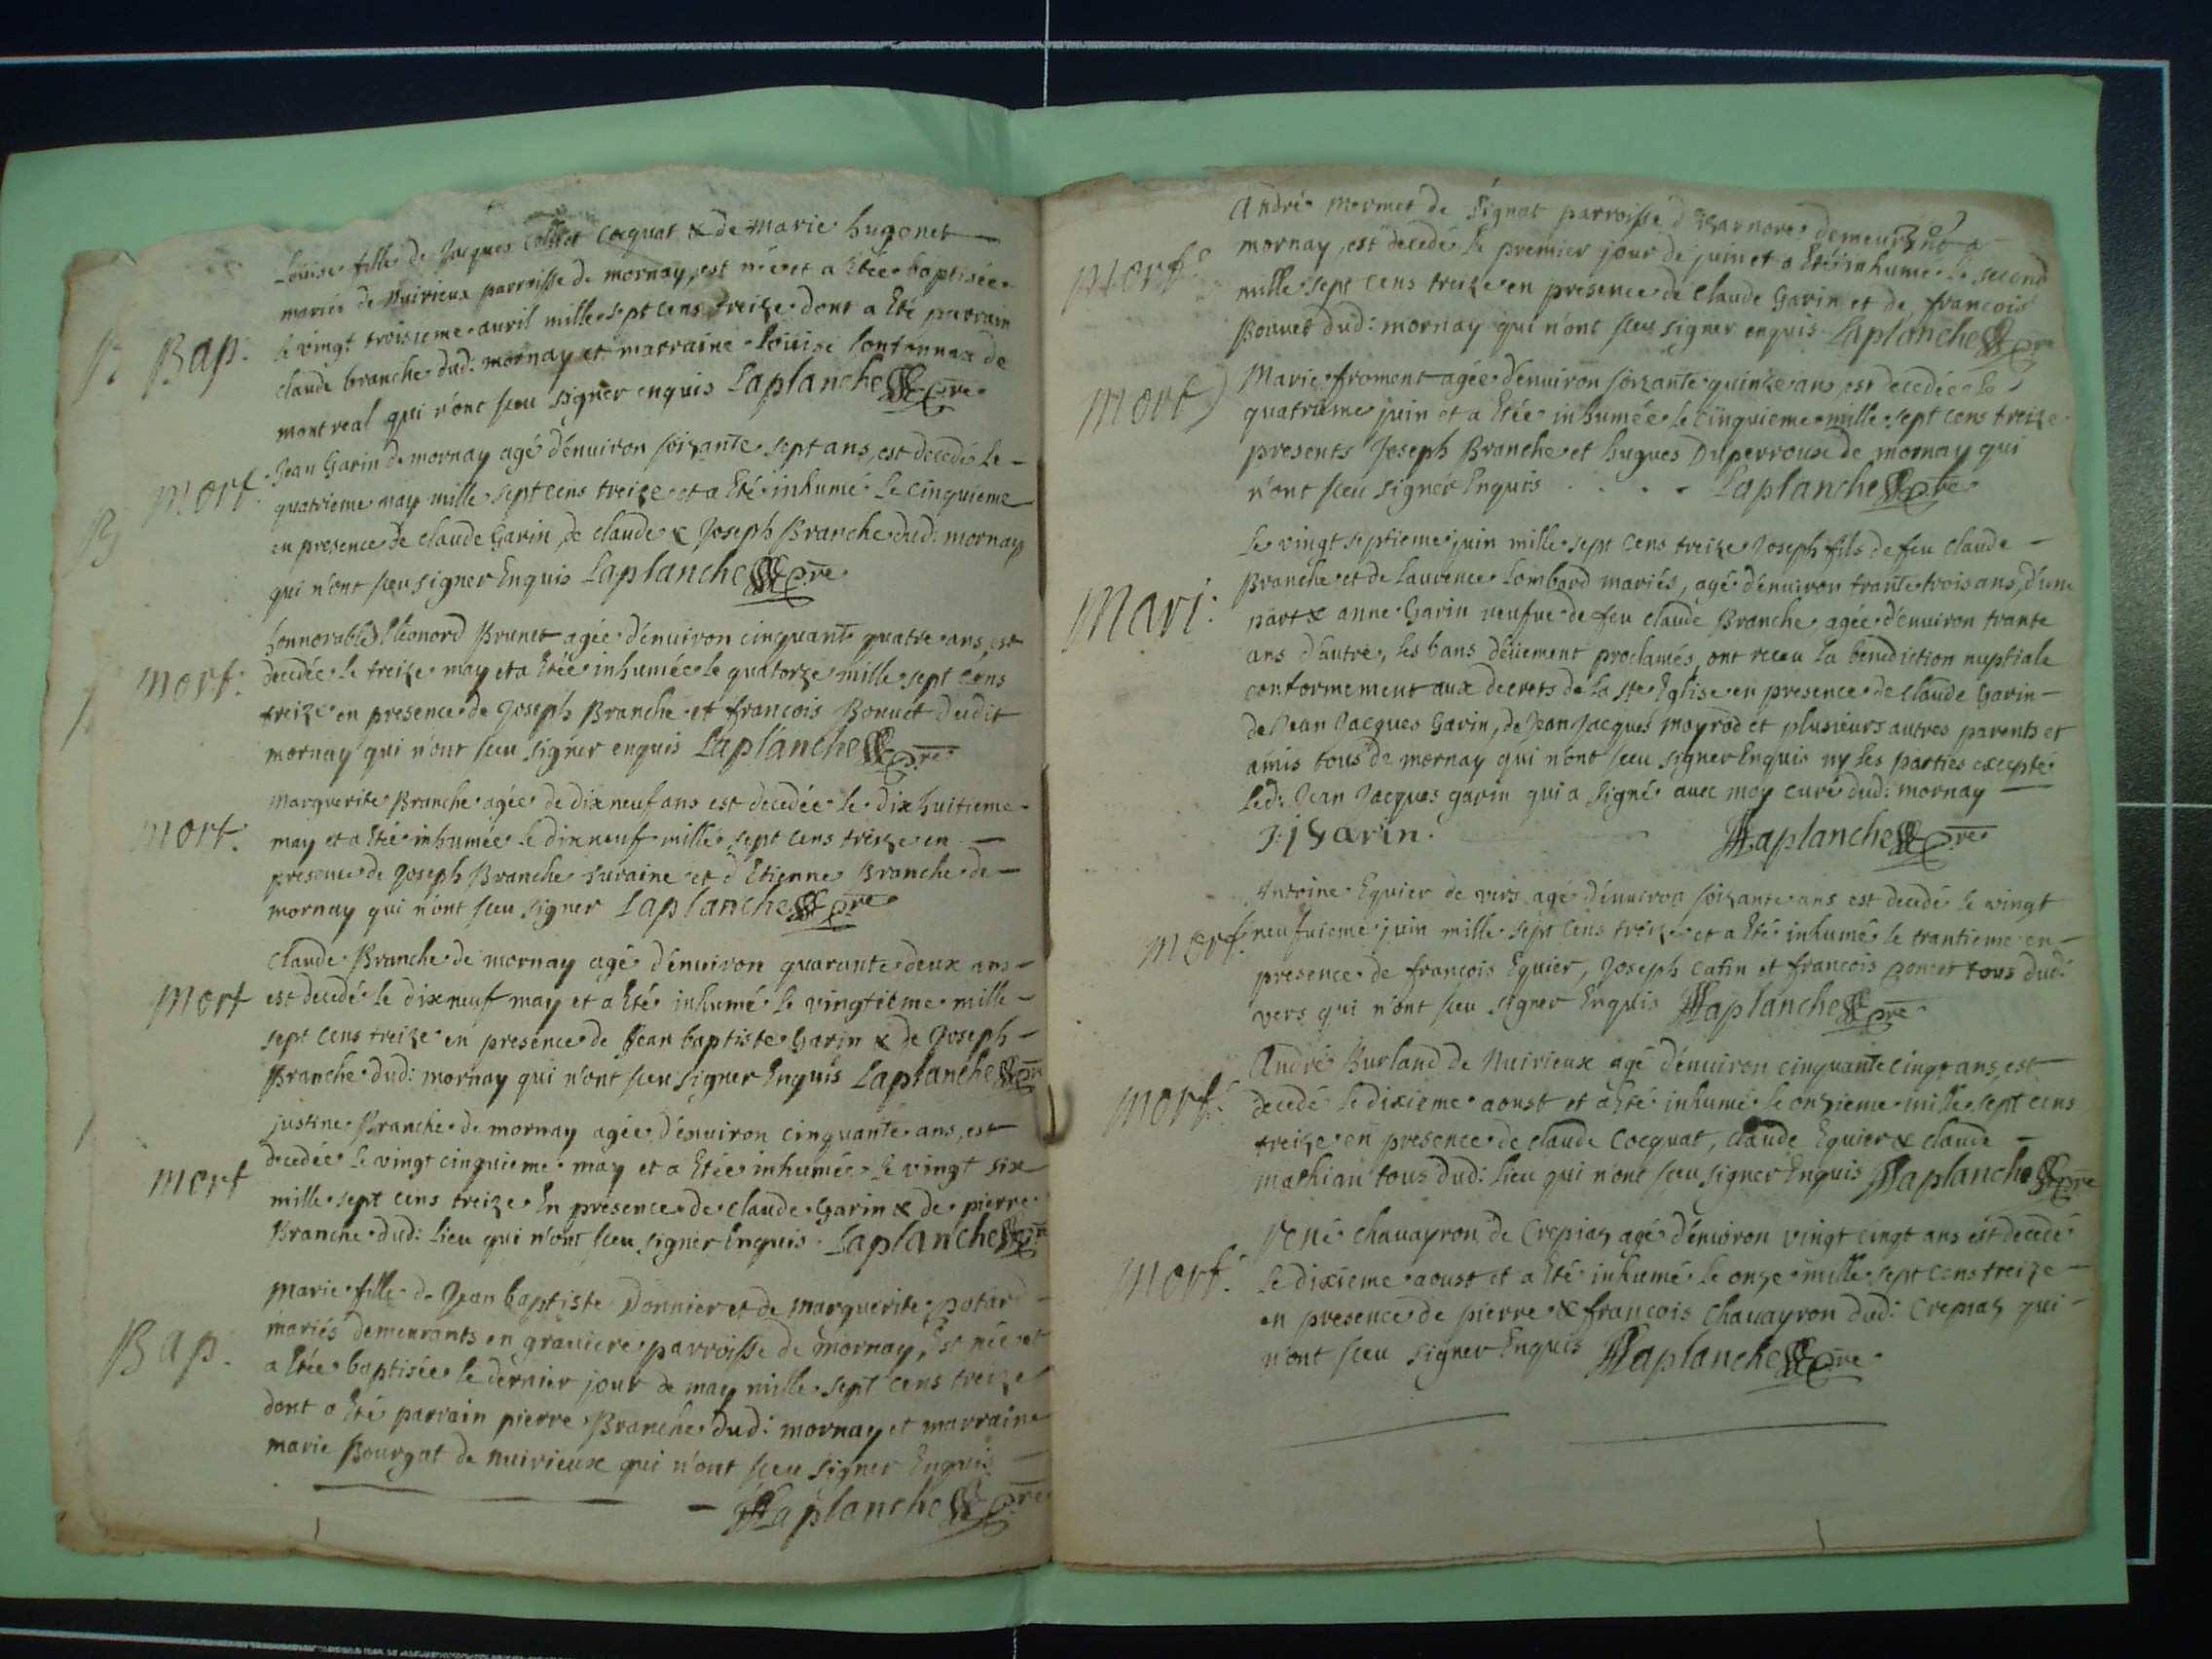 Louise fille de Jacques Cocquat & de Marie hugonet
mariés de Nuirieux parroisse de mornay, est née et a Etée baptisée
Bap. le vingt troisieme auril mille sept cens treize dont a Eté parrain
claude branche dud: mornay et marraine Loüise Contonnax de
montreal qui n'ont sceu signer enquis Laplanche pre
Jean Garin de mornay agé d'enuiron soixante sept ans, est decedé le
Mort. quatrieme may mille sept cens treize et a Eté inhumé le cinquieme
en presence de claude Garin, de claude & Joseph Branche dud: mornay
qui n'ont sceu signer Enquis Laplanche pre
honnorable Eléonord Brunet agée d'enuiron cinquante quatre ans, est
mort: decedée le treize may et a Etée inhumée le quatorze mille sept cens
treize en presence de Joseph Branche et francois Bouuet dudit
mornay qui n'ont sceu signer enquis Laplanche pre
Marguerite Branche agée de dix neuf ans est decedée le dix huitieme
mort: may et a Etée inhumée le dix neuf mille sept cens treize en
presence de Joseph Branche et d'Etienne Branche de
mornay qui n'ont sceu signer Laplanche pre
Claude Branche de mornay agé d'enuiron quarante deux ans
mort est decedé le dix neuf may et a Eté inhumé le vingtieme mille
sept cens treize en presence de Jean baptiste Garin & de Joseph
Branche dud: mornay qui n'ont sceu signer Enquis Laplanche pre
justine Branche de mornay agée d'enuiron cinquante ans, est
mort decedée le vingt cinquieme may et a Etée inhumée le vingt six
mille sept cens treize En presence de claude Garin & de pierre
Branche dud: lieu qui n'ont sceu signer Enquis Laplanche pre
Marie fille de Jean baptiste Donnier et de Marguerite potard
mariés demeurants en grauiere parroisse de Mornay, Est née et
Bap. a Etée baptisée le dernier jour de may mille sept cens treize
dont a Eté parrain pierre Branche dud: mornay et marraine
marie Bourgat de nuirieux qui n'ont sceu signer Enquis
Laplanche pre
André Mermet de Signat parroisse d'Isarnore demeurant a
Mort: mornay, est decedé le premier jour de juin et a Eté inhumé le second
mille sept cens treize en presence de Claude Garin et de francois
Bouuet dud: mornay qui n'ont sceu signer enquis Laplanche pre
Marie froment agée d'enuiron soixante quinze ans est decedée le
Mort quatrieme juin et a Etée inhumée le cinquieme mille sept cens treize
presents Joseph Branche et hugues Duperroux de mornay qui
n'ont sceu signer Enquis . . . . Laplanche pre
Le vingt septieme juin mille sept cens treize Joseph fils de feu Claude
Branche et de Laurence Lombard mariés, agé d'enuiron trante trois ans, d'une
Mari: part & anne Garin veufue de feu claude Branche agée d'enuiron trante
ans d'autre, les bans deüement proclamés, ont receu la benediction nuptiale
conformement aux decrets de la ste Eglise en presence de claude Garin
de Jean Jacques Garin, de Jean Jacques moyrod et plusieurs autres parents et
amis tous de mornay qui n'ont sceu signer Enquis ny les parties excepté
led: Jean Jacques garin qui a signé auec moy curé dud: mornay
J. j Garin. Laplanche pre
Antoine Equier de vers agé d'enuiron soixante ans est decedé le vingt
mort. neufuieme juin mille sept cens treize et a Eté inhumé le trantieme en
presence de francois Equier, Joseph Catin et francois poncet tous dud:
vers qui n'ont sceu signer Enquis Laplanche pre
André Burland de Nuirieux agé d'enuiron cinquante cinqt ans, est
mort: decedé le dixieme aoust et a Eté inhumé le onzieme mille sept cens
treize en presence de claude Cocquat, claude Equier & claude
mathian tous dud: lieu qui n'ont sceu signer Enquis Laplanche pre
René Chauayron de Crepiaz agé d'enuiron vingt cinqt ans est decedé
Mort: le dixieme aoust et a Eté inhumé le onze mille sept cens treize
en presence de pierre & francois Chauayron dud: Crepiaz qui
n'ont sceu signer Enquis Laplanche pre